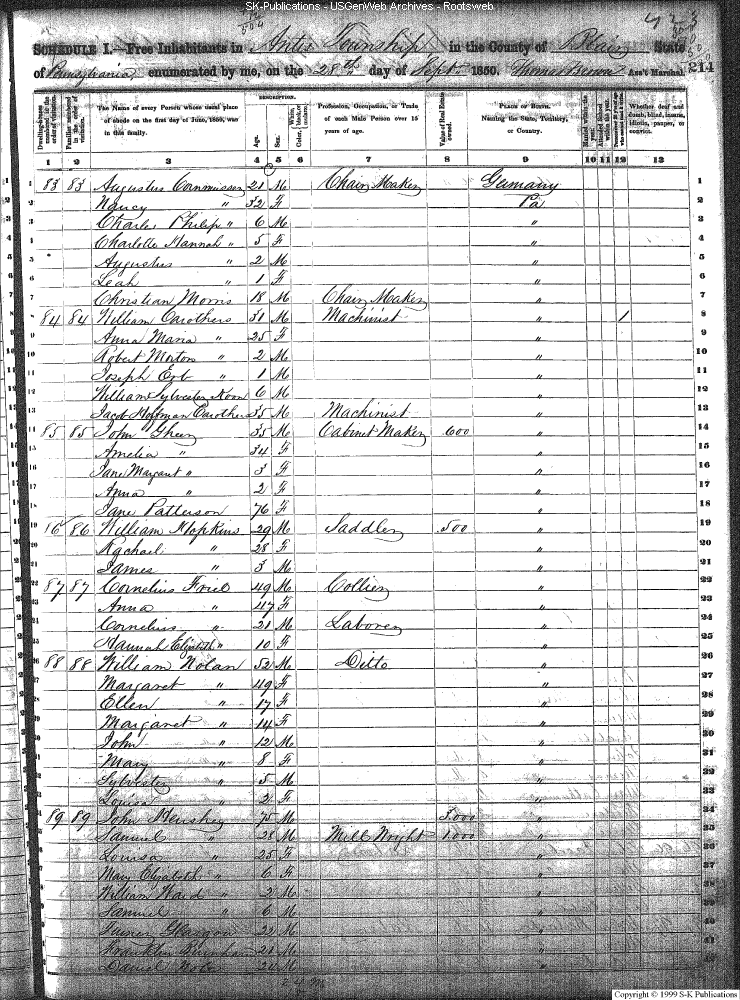 SK-Publications - USGenWeb Archives - Rootsweb
SCHEDULE I.—Free Inhabitants in Antis Township in the County of Blair State
of Pennsylvania enumerated by me, on the 28th day of Sept 1850. Thomas Ass't Marshal 214
Dwelling-houses numbered in the order of visitation.
Families numbered in the order of visitation.
The Name of every Person whose usual place of abode on the first day of June, 1850, was in this family.
DESCRIPTION.
Age.
Sex.
Color, White, black, or mulatto.
Profession, Occupation, or Trade of each Male Person over 15 years of age.
Value of Real Estate owned.
PLACE OF BIRTH.
Naming the State, Territory, or Country.
Married within the year.
Attended School within the year.
Whether deaf and dumb, blind, insane, idiotic, pauper, or convict.
1 2 3 4 5 6 7 8 9 10 11 12 13
1 83 83 Augustus 21 M Chair Maker Germany 1
2 Nancy " 32 F Pa 2
3 Charles Philip " 6 M " 3
4 Charlotte Hannah " 5 F " 4
5 Augustus " 2 M " 5
6 Leah " 1 F " 6
7 Christian Morris 18 M Chair Maker " 7
8 84 84 William Carothers 31 M Machinist " 1 8
9 Anna Maria " 25 F " 9
10 Robert Morton " 2 M " 10
11 Joseph " 1 M " 11
12 William Sylvester Koon 6 M " 12
13 Jacob Hoffman Carothers 35 M Machinist " 13
14 85 85 John 35 M Cabinet Maker 600 " 14
15 Amelia " 34 F " 15
16 Jane Margaret " 3 F " 16
17 Anna " 2 F " 17
18 Jane Patterson 76 F " 18
19 86 86 William Hopkins 29 M Saddler 500 " 19
20 Rachael " 28 F " 20
21 James " 3 M " 21
22 87 87 Cornelius Friel 49 M Collier " 22
23 Anna " 47 F " 23
24 Cornelius " 21 M Laborer " 24
25 Hannah Elizabeth " 10 F " 25
26 88 88 William Nolan 52 M Ditto " 26
27 Margaret " 49 F " 27
28 Ellen " 17 F " 28
29 Margaret " 14 F " 29
30 John " 12 M " 30
31 Mary " 8 F " 31
32 Sylvester " 5 M " 32
33 Louisa " 2 F " 33
34 89 89 John Henshey 75 M 3.000 " 34
35 Samuel " 28 M Mill Wright 1.000 " 35
36 Louisa " 25 F " 36
37 Mary Elizabeth " 6 F " 37
38 William Ward " 2 M " 38
39 Samuel " 6 M " 39
40 Glasgow 22 M " 40
41 Franklin 21 M " 41
42 Daniel M " 42
Copyright © 1999 S-K Publications